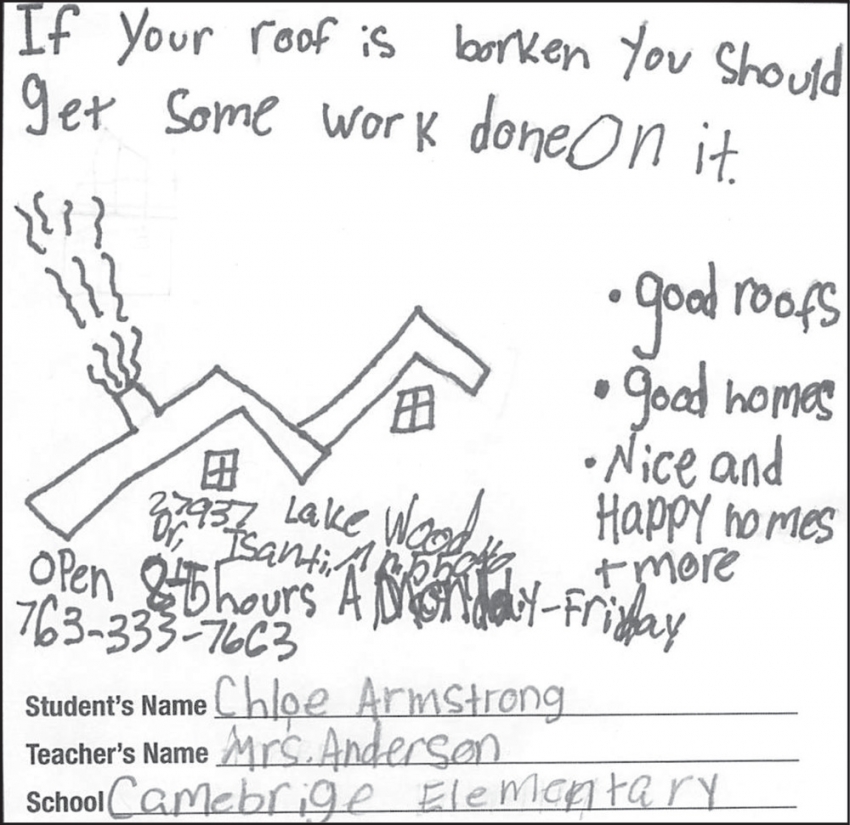 If your roof is borken You Should
get Some work done On it.
• good roofs
• good homes
• Nice and
Happy homes
+ more
27937 Lake Wood
Dr, Isanti, M
Open 8 hours A Monday-Friday
763-333-7663
Student's Name Chloe Armstrong
Teacher's Name Mrs. Anderson
School Camebrige Elementary